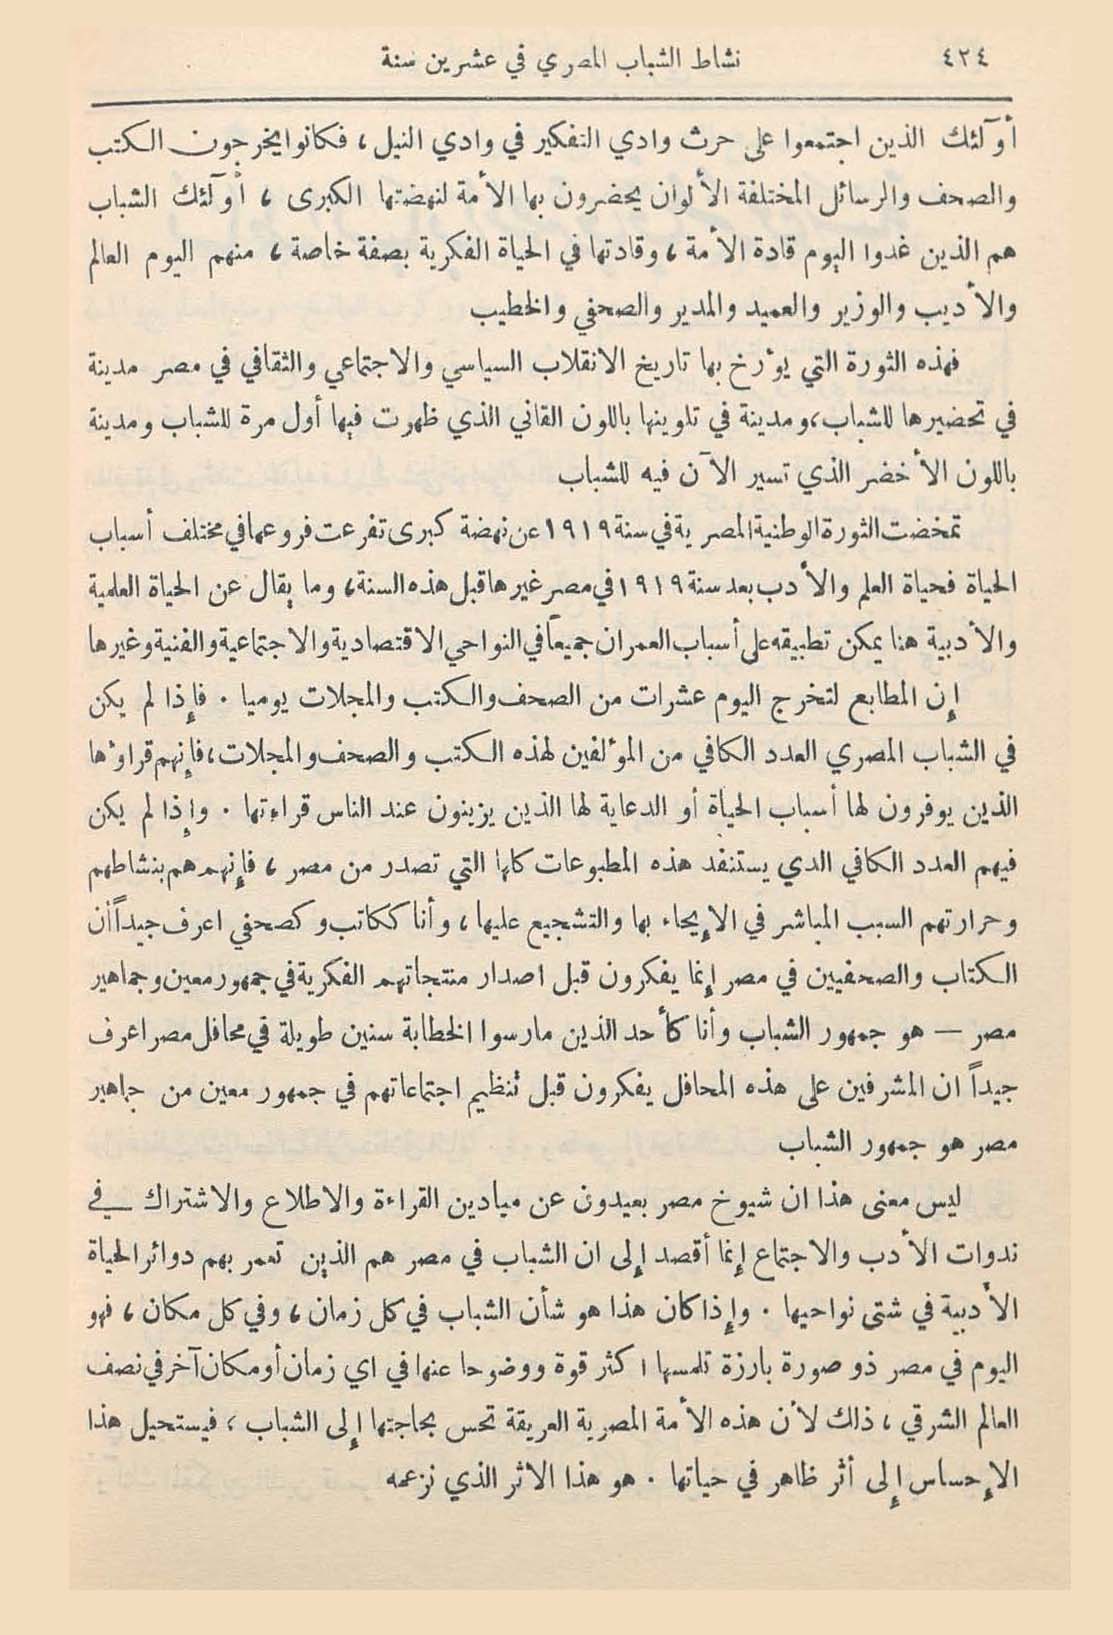 ٤٢٤ نشاط الشباب المصري في عشرين سنة
أولئك الذين اجتمعوا على حرث وادي التفكير في وادي النيل ، فكانوا يخرجون الكتب
والصحف والرسائل المختلفة الألوان يحضرون بها الأمة لنهضتها الكبرى ، أولئك الشباب
هم الذين غدوا اليوم قادة الأمة ، وقادتها في الحياة الفكرية بصفة خاصة ، منهم اليوم العالم
والأديب والوزير والعميد والمدير والصحفي والخطيب
فهذه الثورة التي يؤرخ بها تاريخ الانقلاب السياسي والاجتماعي والثقافي في مصر مدينة
في تحضيرها للشباب، ومدينة في تلوينها باللون القاني الذي ظهرت فيها أول مرة للشباب ومدينة
باللون الأخضر الذي تسير الآن فيه للشباب
تمخضت الثورة الوطنية المصرية في سنة ١٩١٩ عن نهضة كبرى تفرعت فروعها في مختلف أسباب
الحياة فحياة العلم والأدب بعد سنة ١٩١٩ في مصر غيرها قبل هذه السنة، وما يقال عن الحياة العلمية
والأدبية هنا يمكن تطبيقه على أسباب العمران جميعاً في النواحي الاقتصادية والاجتماعية والفنية وغيرها
إن المطابع لتخرج اليوم عشرات من الصحف والكتب والمجلات يوميا . فإذا لم يكن
في الشباب المصري العدد الكافي من المؤلفين لهذه الكتب والصحف والمجلات، فإنهم قراؤها
الذين يوفرون لها أسباب الحياة أو الدعاية لها الذين يزينون عند الناس قراءتها . وإذا لم يكن
فيهم العدد الكافي الذي يستنفد هذه المطبوعات كلها التي تصدر من مصر ، فإنهم هم بنشاطهم
وحرارتهم السبب المباشر في الإيحاء بها والتشجيع عليها ، وأنا ككاتب وكصحفي اعرف جيداً أن
الكتاب والصحفيين في مصر إنما يفكرون قبل اصدار منتجاتهم الفكرية في جمهور معين وجماهير
مصر — هو جمهور الشباب وأنا كأحد الذين مارسوا الخطابة سنين طويلة في محافل مصر اعرف
جيداً ان المشرفين على هذه المحافل يفكرون قبل تنظيم اجتماعاتهم في جمهور معين من جماهير
مصر هو جمهور الشباب
ليس معنى هذا ان شيوخ مصر بعيدون عن ميادين القراءة والاطلاع والاشتراك في
ندوات الأدب والاجتماع إنما أقصد إلى ان الشباب في مصر هم الذين تعمر بهم دوائر الحياة
الأدبية في شتى نواحيها . وإذا كان هذا هو شأن الشباب في كل زمان ، وفي كل مكان ، فهو
اليوم في مصر ذو صورة بارزة تلمسها اكثر قوة ووضوحا عنها في اي زمان أو مكان آخر في نصف
العالم الشرقي ، ذلك لأن هذه الأمة المصرية العريقة تحس بحاجتها إلى الشباب ، فيستحيل هذا
الإحساس إلى أثر ظاهر في حياتها . هو هذا الاثر الذي نزعمه